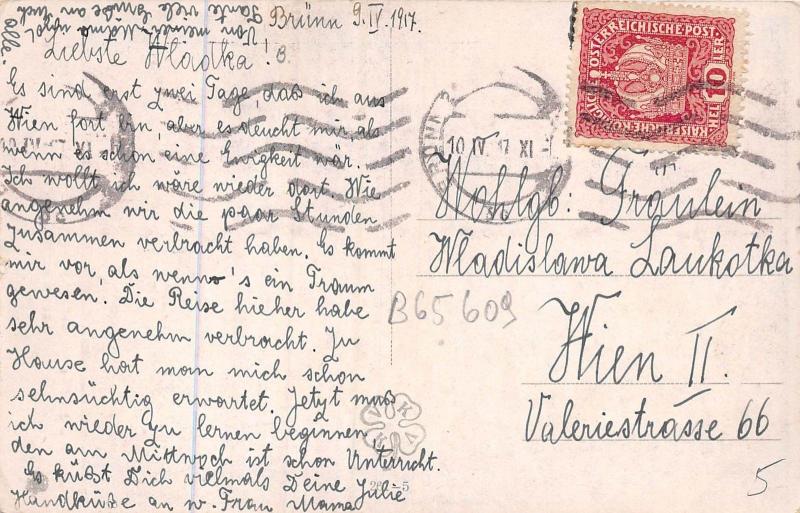 Brünn 9. IV. 1917.
Liebste Wladtka!
Es sind erst zwei Tage, daß ich aus
Wien fort bin, aber es deucht mir, als
wenn es schon eine Ewigkeit wär.
Ich wollt ich wäre wieder dort. Wie
angenehm wir die paar Stunden
zusammen verbracht haben. Es kommt
mir vor, als wenn's ein Traum
gewesen. Die Reise hieher habe
sehr angenehm verbracht. Zu
Hause hat man mich schon
sehnsüchtig erwartet. Jetzt muß
ich wieder zu lernen beginnen,
den am Mittwoch ist schon Unterricht.
Es küßt Dich vielmals Deine Julie
Handküße an w. Frau Mama
Von meiner
Tante viele Grüße an Euch
alle.
ÖSTERREICHISCHE POST
KAISERLICHE KÖNIGLICHE
HELLER 10
10. IV. 17 XI
Wohlgb: Fräulein
Wladislawa Laukotka
Wien II.
Valeriestrasse 66
B65609
K V K V
5